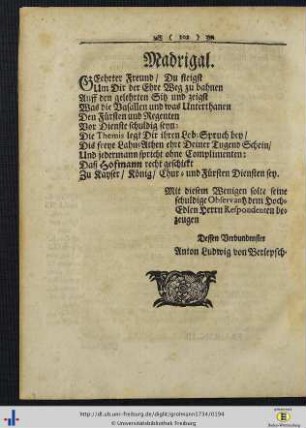 ( 102 )
Madrigal.
GEehrter Freund / Du steigst
Um Dir der Ehre Weg zu bahnen
Auff den gelehrten Sitz und zeigst
Was die Vasallen und was Unterthanen
Den Fürsten und Regenten
Vor Dienste schuldig seyn:
Die Themis legt Dir ihren Lob-Spruch bey /
Diß freye Lahn-Athen ehrt Deiner Tugend Schein /
Und jedermann spricht ohne Complimenten:
Daß Hofmann recht geschickt
Zu Kayser / König / Chur- und Fürsten Diensten sey.
Mit diesem Wenigen solte seine
schuldige Observantz dem Hoch-
Edlen Herrn Respondenten be-
zeugen
Dessen Verbundenster
Anton Ludwig von Berlepsch.
http://dl.ub.uni-freiburg.de/diglit/grolmann1734/0194
© Universitätsbibliothek Freiburg